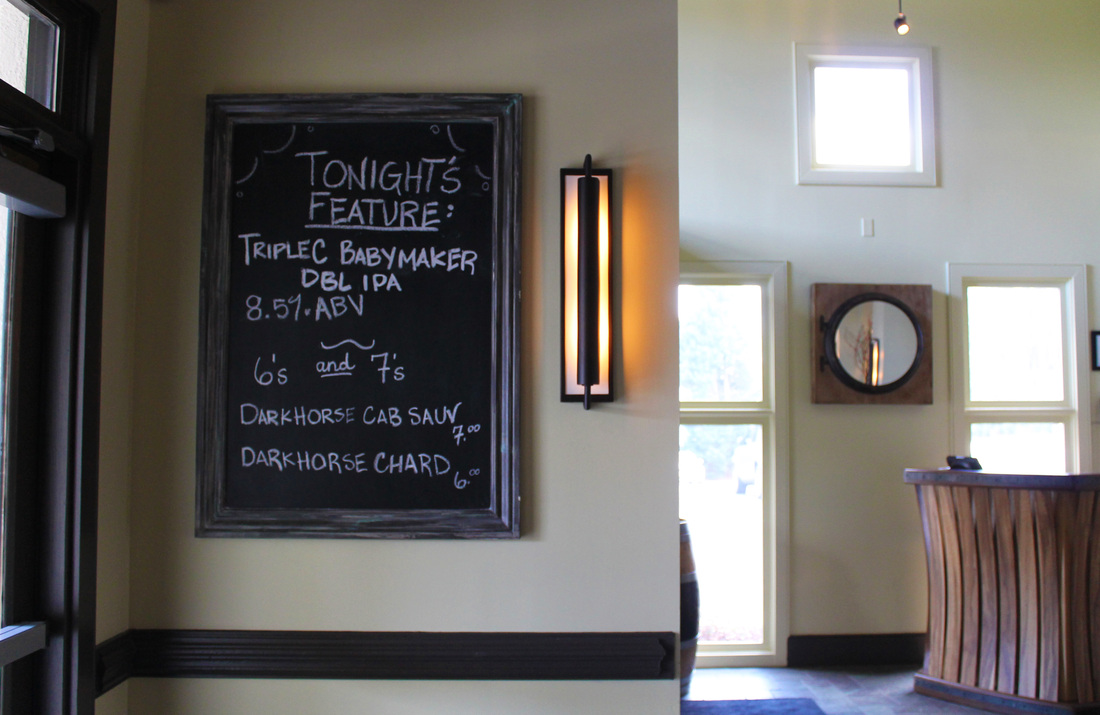 TONIGHT'S
FEATURE:
TRIPLE C BABYMAKER
DBL IPA
8.5% ABV
6's and 7's
DARKHORSE CAB SAUV
7.00
DARKHORSE CHARD
6.00